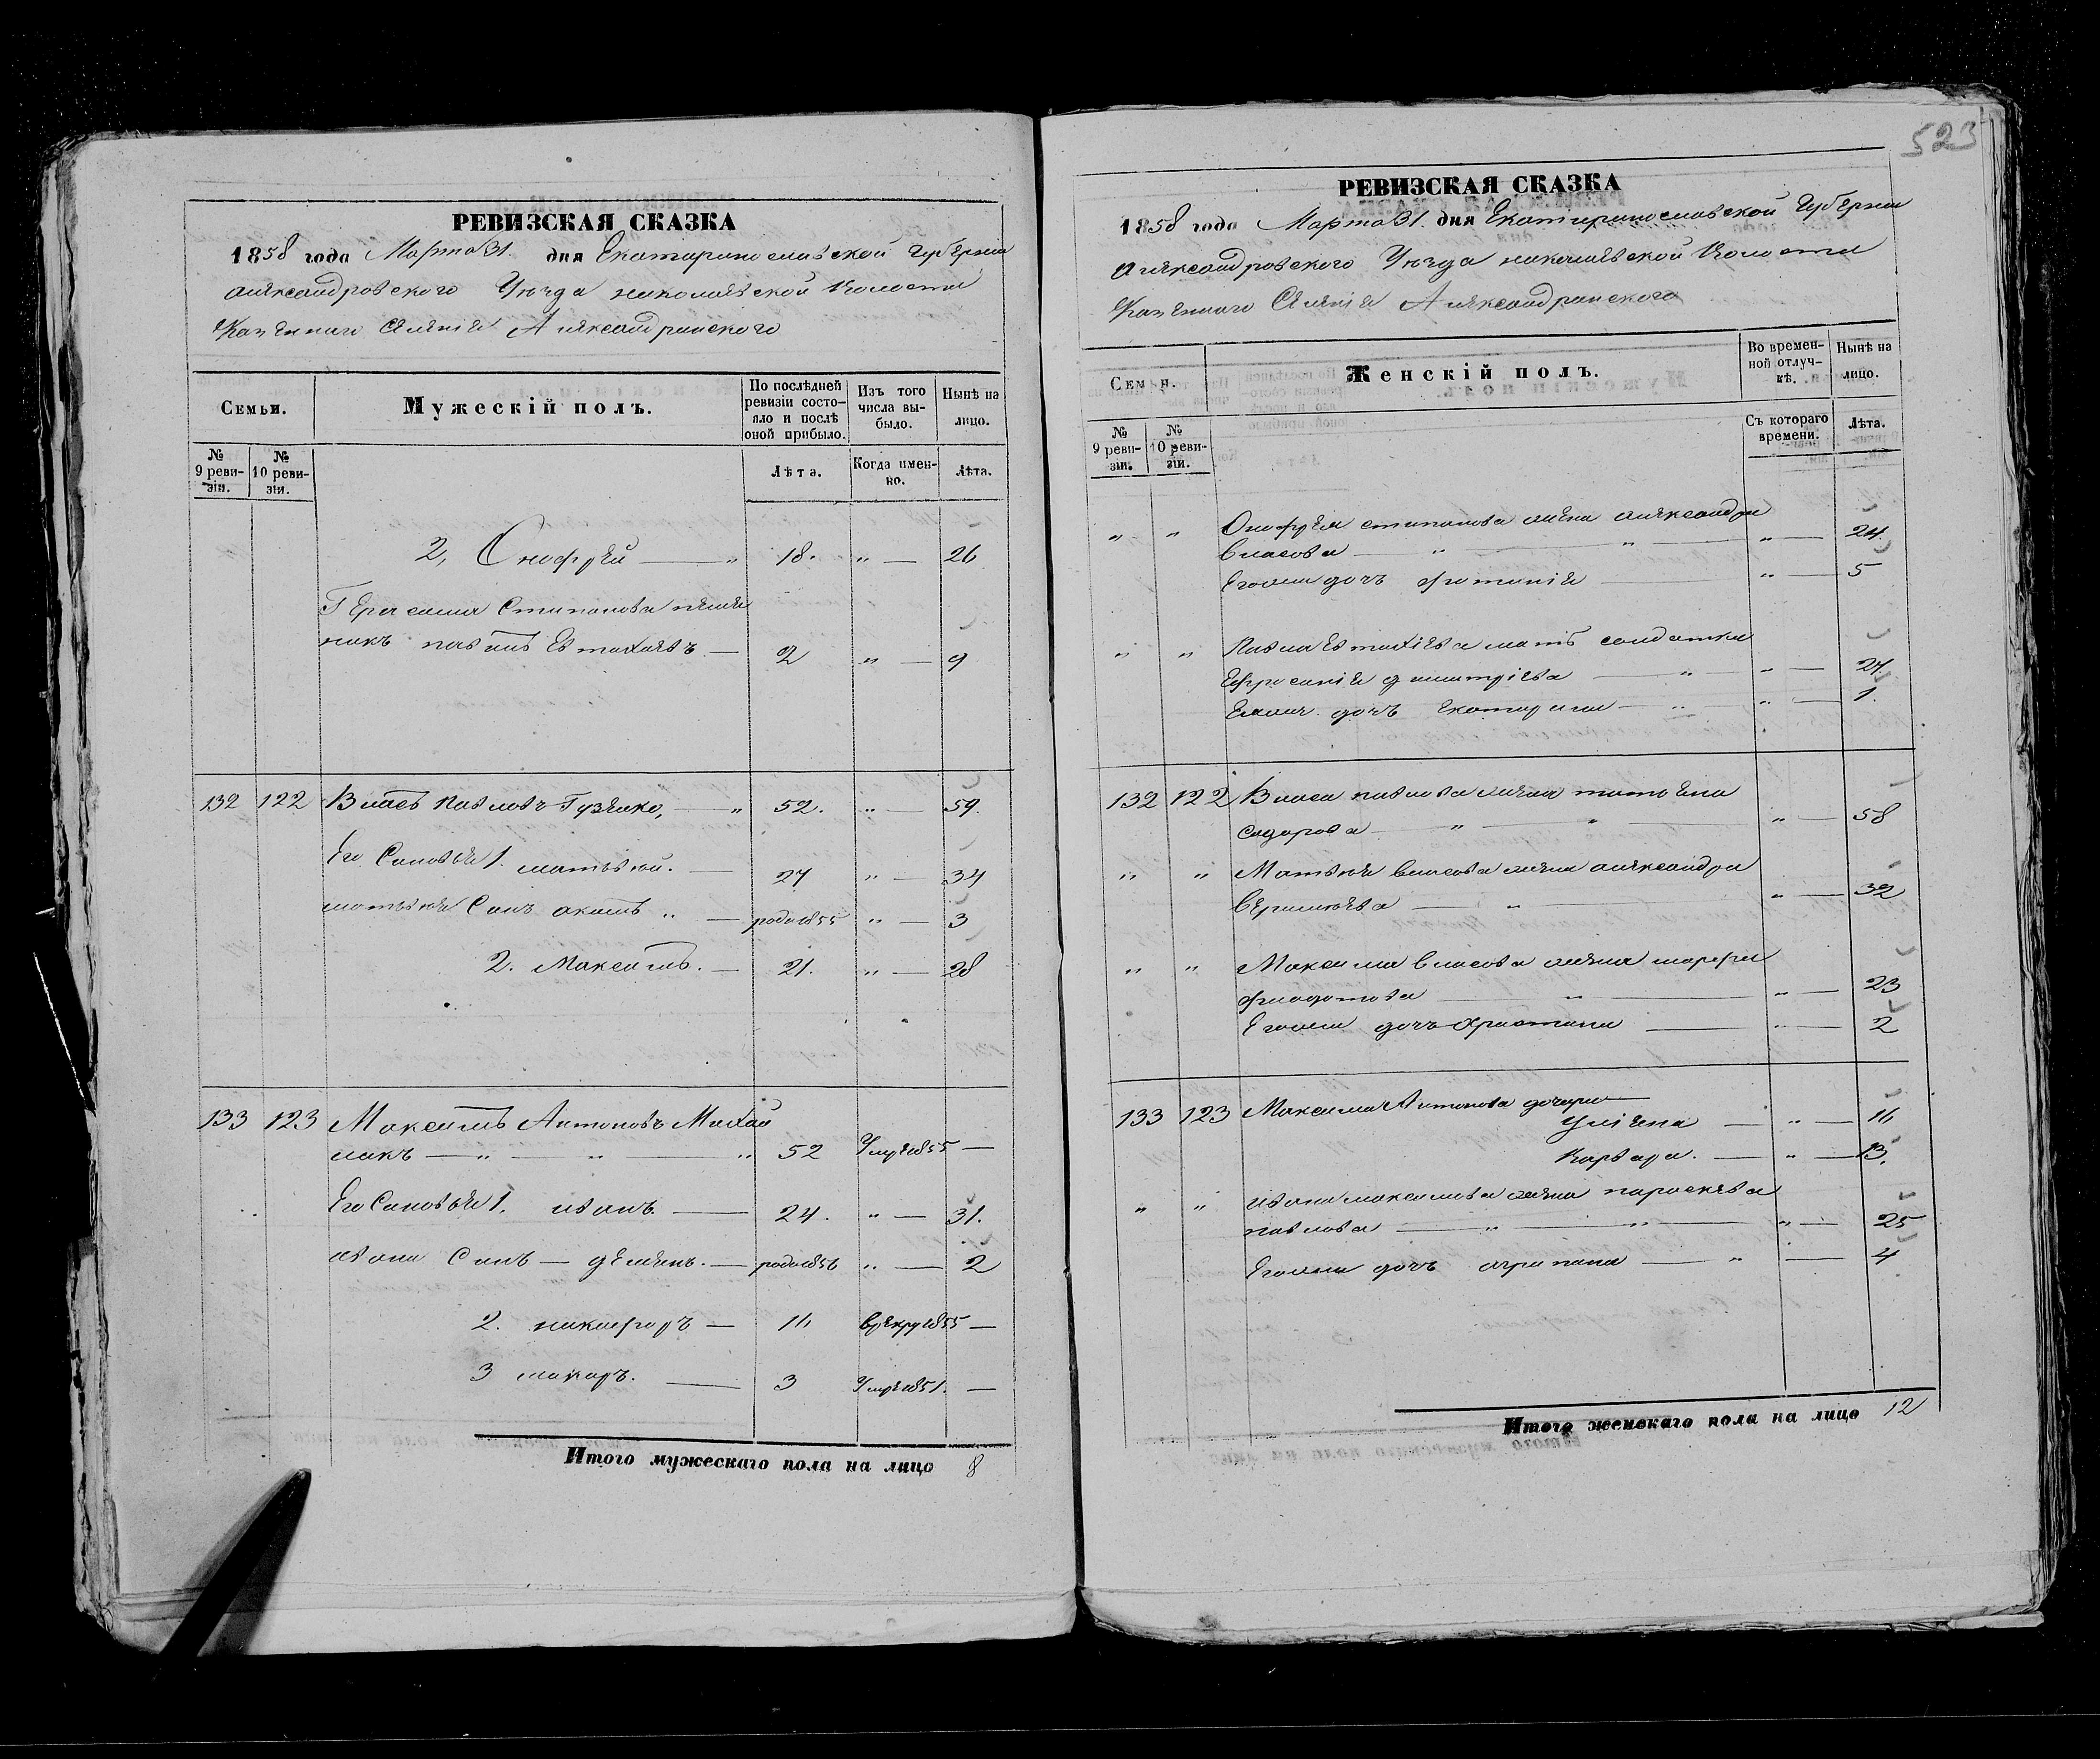 РЕВИЗСКАЯ СКАЗКА
1858 года Марта 31. дня Екатеринославской Губернии
Александровского Уезда николаевской Волости
Казенного Селения Александринского
Семьи.
Мужескій полъ.
По послѣдней ревизіи состояло и послѣ оной прибыло.
Изъ того числа выбыло.
Нынѣ на лицо.
№ 9 ревизіи.
№ 10 ревизіи.
Лѣта.
Когда именно.
Лѣта.
2, Онофрей — " 18. " — 26
Герасима Степанова племя
никъ павелъ Евтихиевъ — 2 " — 9
132 122 Власъ Павловъ Гузенко, — " 52. " — 59.
Его Сыновья 1. матвей. — 27 " — 34
матвея Сынъ акимъ " — родо 1855 " — 3
2. Максимъ. — 21. " — 28
133 123 Максимъ Антоновъ Михай
лакъ — " — " — " 52 Умре 1855 —
Его Сыновья 1. иванъ — 24. " — 31.
ивана Сынъ — демянъ. — родо 1856 " — 2
2. никифоръ — 16 в рекру 1855 —
3 макаръ. — 3 Умре 1851. —
Итого мужескаго пола на лицо 8
523
РЕВИЗСКАЯ СКАЗКА
1858 года Марта 31. дня Екатеринославской Губернии
Александровского Уезда николаевской Волости
Казенного Селения Александринского
Семьи.
Женскій полъ.
Во временной отлучкѣ.
Нынѣ на лицо.
№ 9 ревизіи.
№ 10 ревизіи.
Съ котораго времени.
Лѣта.
" " Онофрея степанова жена александра
власова — " — " — " — 24.
Егоже дочъ фотиния — " — 5
" " Павла Евтихіева мать солдатка
Ефросиния димитріева — " — " — 27.
Ея дочъ Екатерина — " — " — 1.
132 122 Власа павлова жена татьяна
сидорова — " — " — " — 58
" " Матвея власова жена александра
— " — " — 32
" " Максима власова жена марфа
федотова — " — " — 23
Егоже дочъ христина — " — 2
133 123 Максима Антонова дочери
Улияна — " — 16
Варвара. — " — 13.
" " ивана максимова жена параскева
павлова — " — " — " — 25
Егоже дочъ агрипина — " — 4
Итого женскаго пола на лицо 12